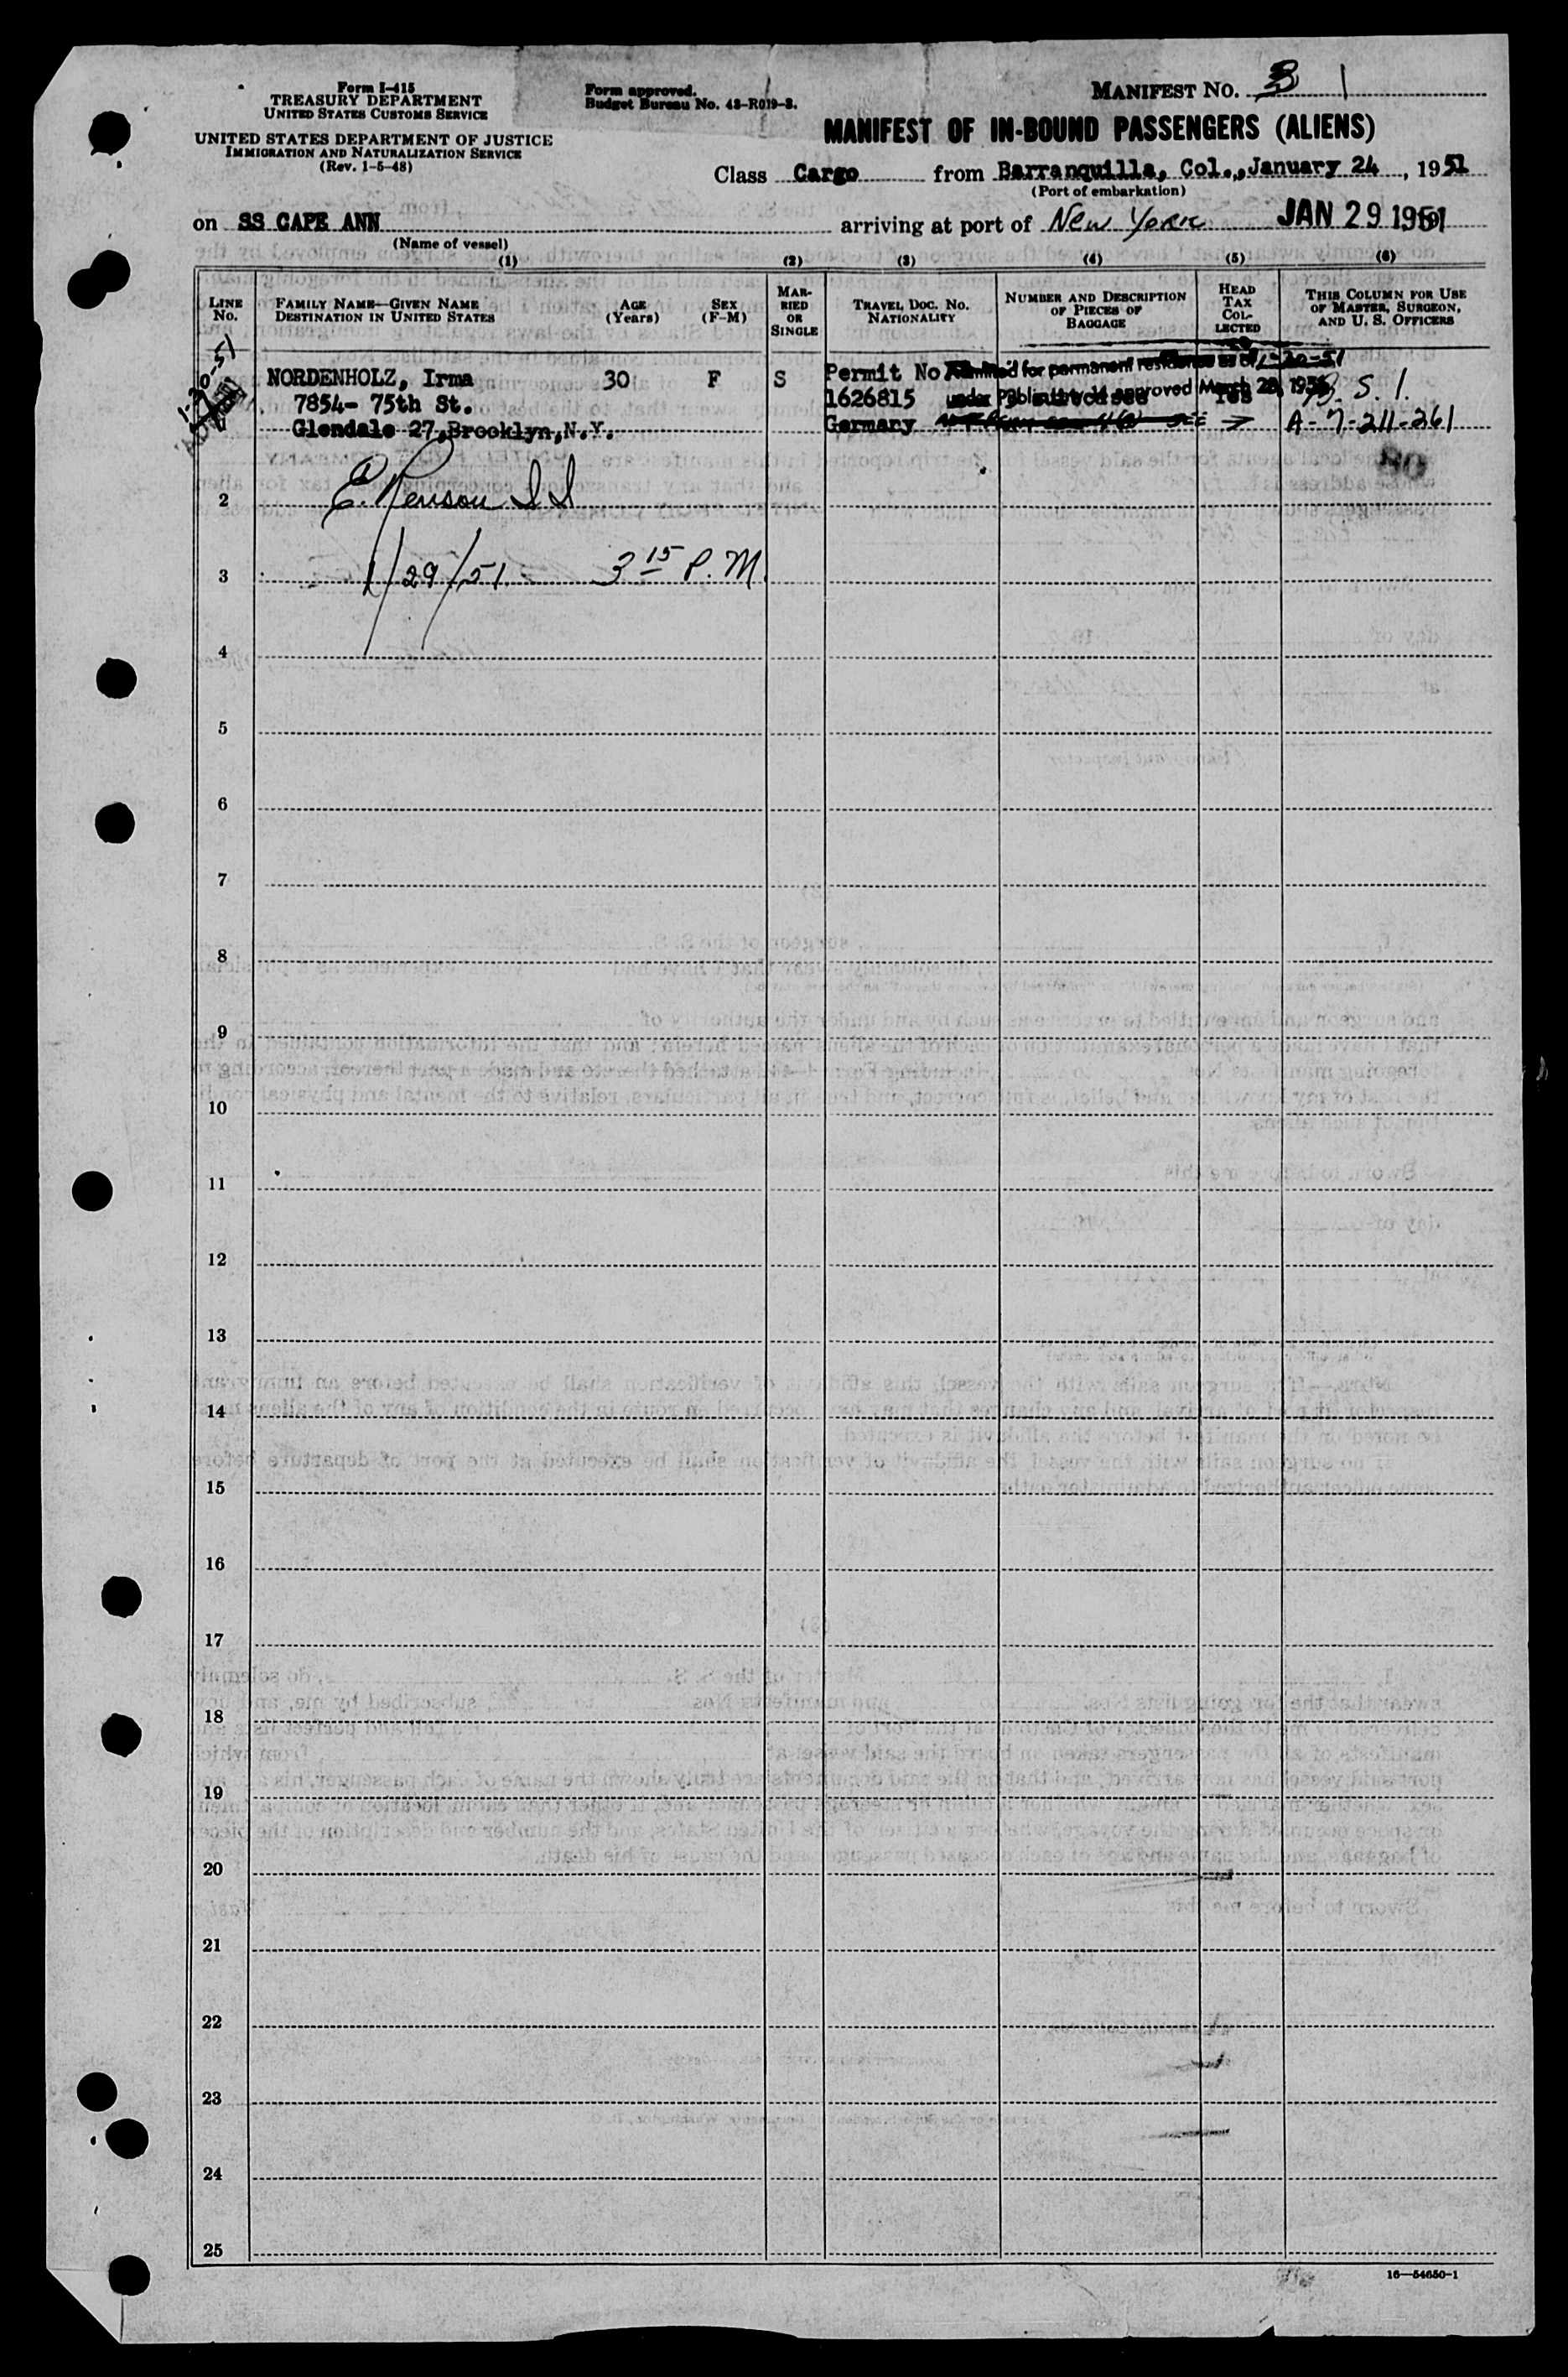 Form I-415
TREASURY DEPARTMENT
UNITED STATES CUSTOMS SERVICE
UNITED STATES DEPARTMENT OF JUSTICE
IMMIGRATION AND NATURALIZATION SERVICE
(Rev. 1-5-48)
Form approved.
Budget Bureau No. 43-R019-3.
MANIFEST NO. 3 1
MANIFEST OF IN-BOUND PASSENGERS (ALIENS)
Class Cargo from Barranquilla, Col., January 24, 1951
(Port of embarkation)
on SS CAPE ANN arriving at port of New York JAN 29 1951
(Name of vessel)
(1) (2) (3) (4) (5) (6)
LINE NO.
FAMILY NAME—GIVEN NAME
DESTINATION IN UNITED STATES
AGE (Years)
SEX (F-M)
MARRIED OR SINGLE
TRAVEL DOC. NO.
NATIONALITY
NUMBER AND DESCRIPTION OF PIECES OF BAGGAGE
HEAD TAX COLLECTED
THIS COLUMN FOR USE OF MASTER, SURGEON, AND U. S. OFFICERS
1-30-51
NORDENHOLZ, Irma 30 F S Permit No. Admitted for permanent residence as of 1-30-51
7854- 75th St. 1626815 under Public approved March 28, B. S. I.
Glendale 27, Brooklyn, N.Y. Germany A-7-211-261
2
E. Renson I I
3 1/29/51 - 3 15 P.M.
4
5
6
7
8
9
10
11
12
13
14
15
16
17
18
19
20
21
22
23
24
25
16—54650-1